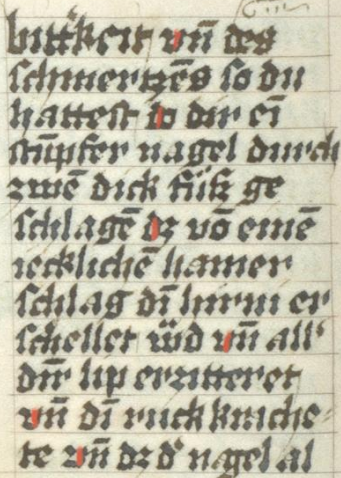 bittˀkeit vn̄ des
schmertzēs so du
hattest do dir ei̅
stu̅pfer nagel durch
zwē dick fu̍ß ge
schlagē dz vō eine̅
iecklichē hamer
schlag di̅ hirni er
schellet vn̄ all
din lip erzitteret
vn̄ di̅ ruck kriche-
te vn̄ dz dˀ nagel al